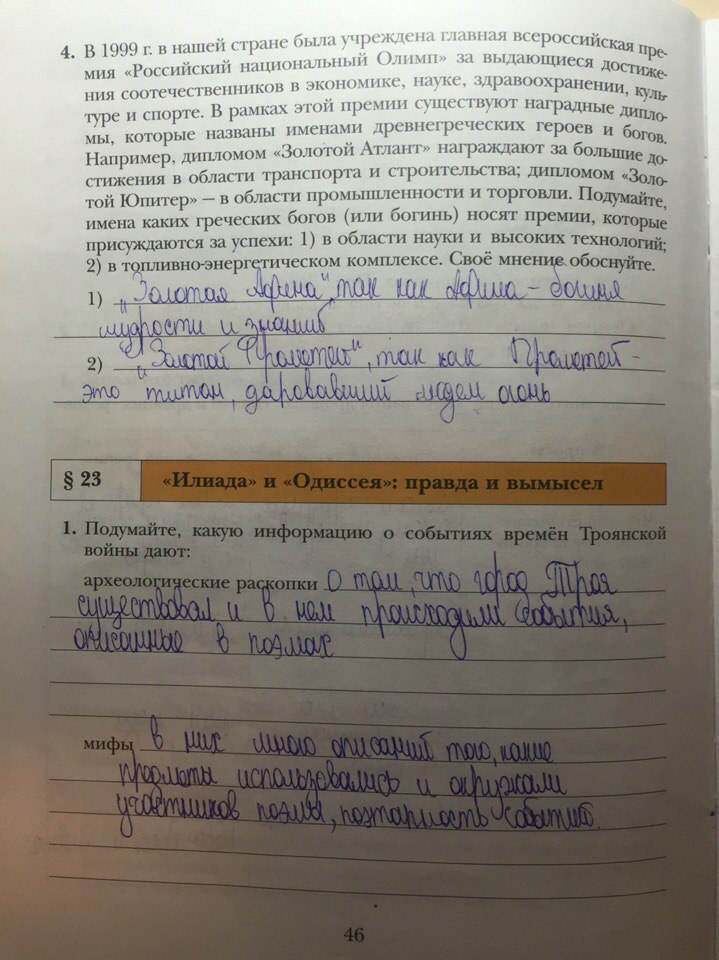 4. В 1999 г. в нашей стране была учреждена главная всероссийская пре-
мия «Российский национальный Олимп» за выдающиеся достиже-
ния соотечественников в экономике, науке, здравоохранении, куль-
туре и спорте. В рамках этой премии существуют наградные дипло-
мы, которые названы именами древнегреческих героев и богов.
Например, дипломом «Золотой Атлант» награждают за большие до-
стижения в области транспорта и строительства; дипломом «Золо-
той Юпитер» — в области промышленности и торговли. Подумайте,
имена каких греческих богов (или богинь) носят премии, которые
присуждаются за успехи: 1) в области науки и высоких технологий;
2) в топливно-энергетическом комплексе. Своё мнение обоснуйте.
1) „Золотая Афина", так как Афина - богиня
мудрости и знаний
2) „Золотой Прометей", так как Прометей -
это титан, даровавший людем огонь
§ 23 «Илиада» и «Одиссея»: правда и вымысел
1. Подумайте, какую информацию о событиях времён Троянской
войны дают:
археологические раскопки О том, что город Троя
существовал и в нем происходили события,
описанные в поэмах
мифы в них много описаний того, какие
предметы использовались и окружали
участников поэмы, поэтапность событий.
46